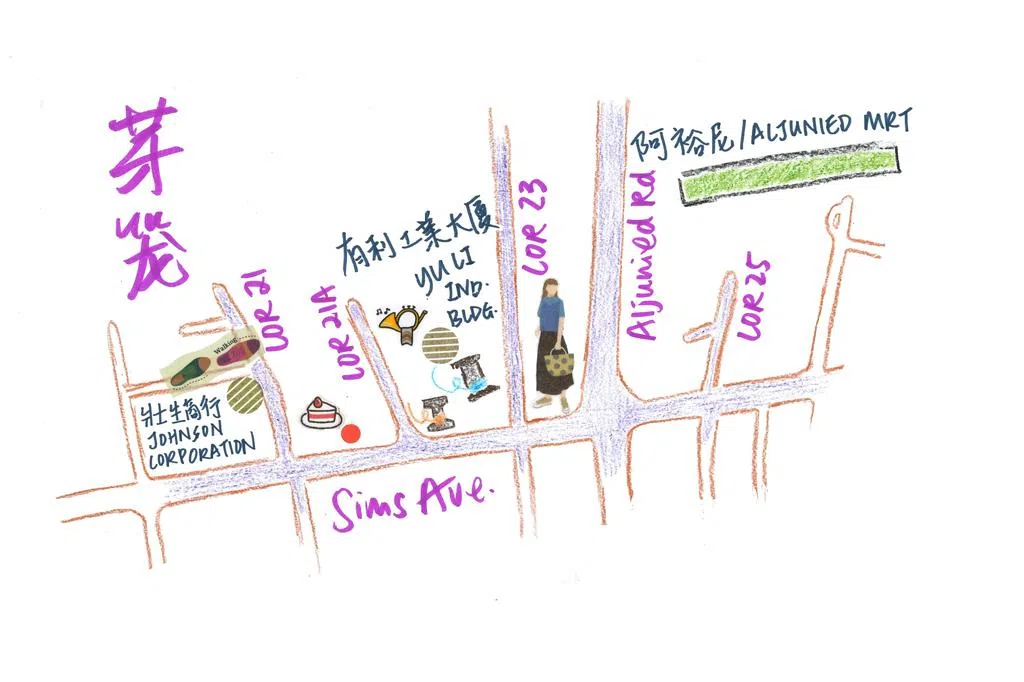 芽
笼
阿裕尼/ALJUNIED MRT
LOR 23
Aljunied Rd
有利工業大廈
YU LI
IND.
BLDG.
LOR 21
LOR 21A
LOR 25
Walking
壯生商行
JOHNSON
CORPORATION
Sims Ave.